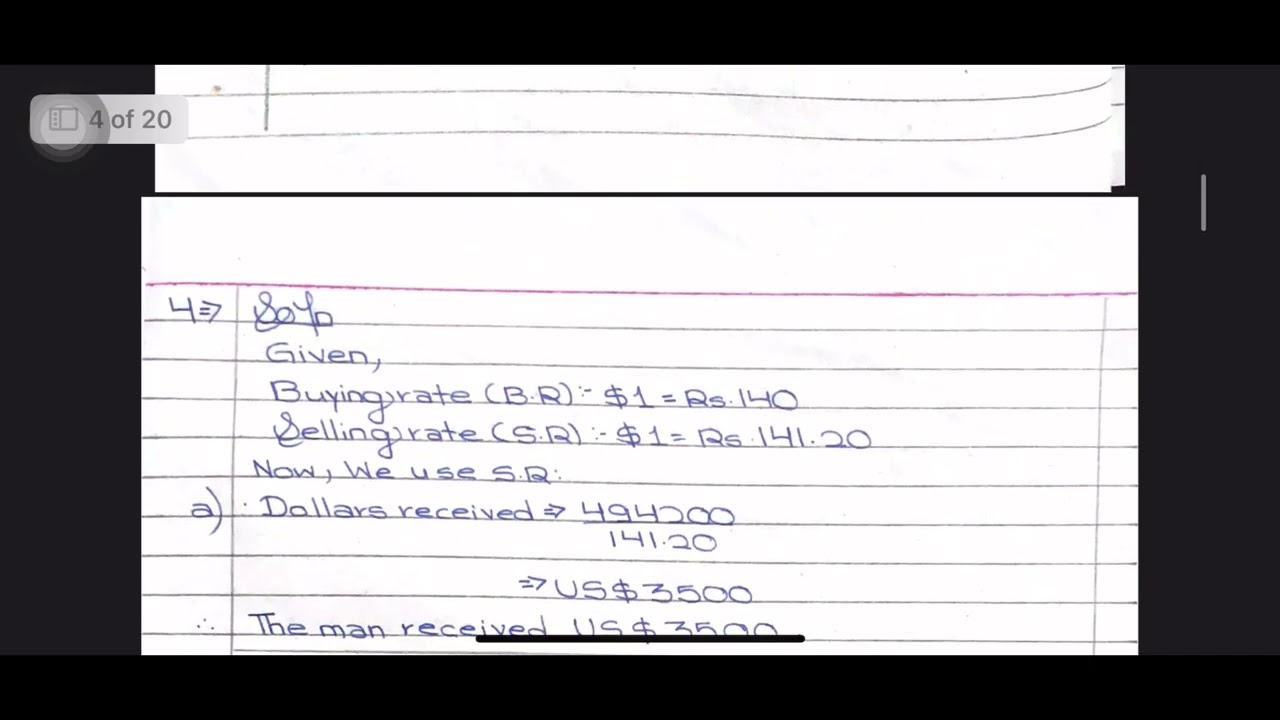 4 of 20
4⇒ Solⁿ
Given,
Buying rate (B.R):- $1 = Rs.140
Selling rate (S.R) :- $1 = Rs.141.20
Now, We use S.R:
a) Dollars received ⇒ 494200
141.20
⇒ US$3500
∴ The man received US$3500